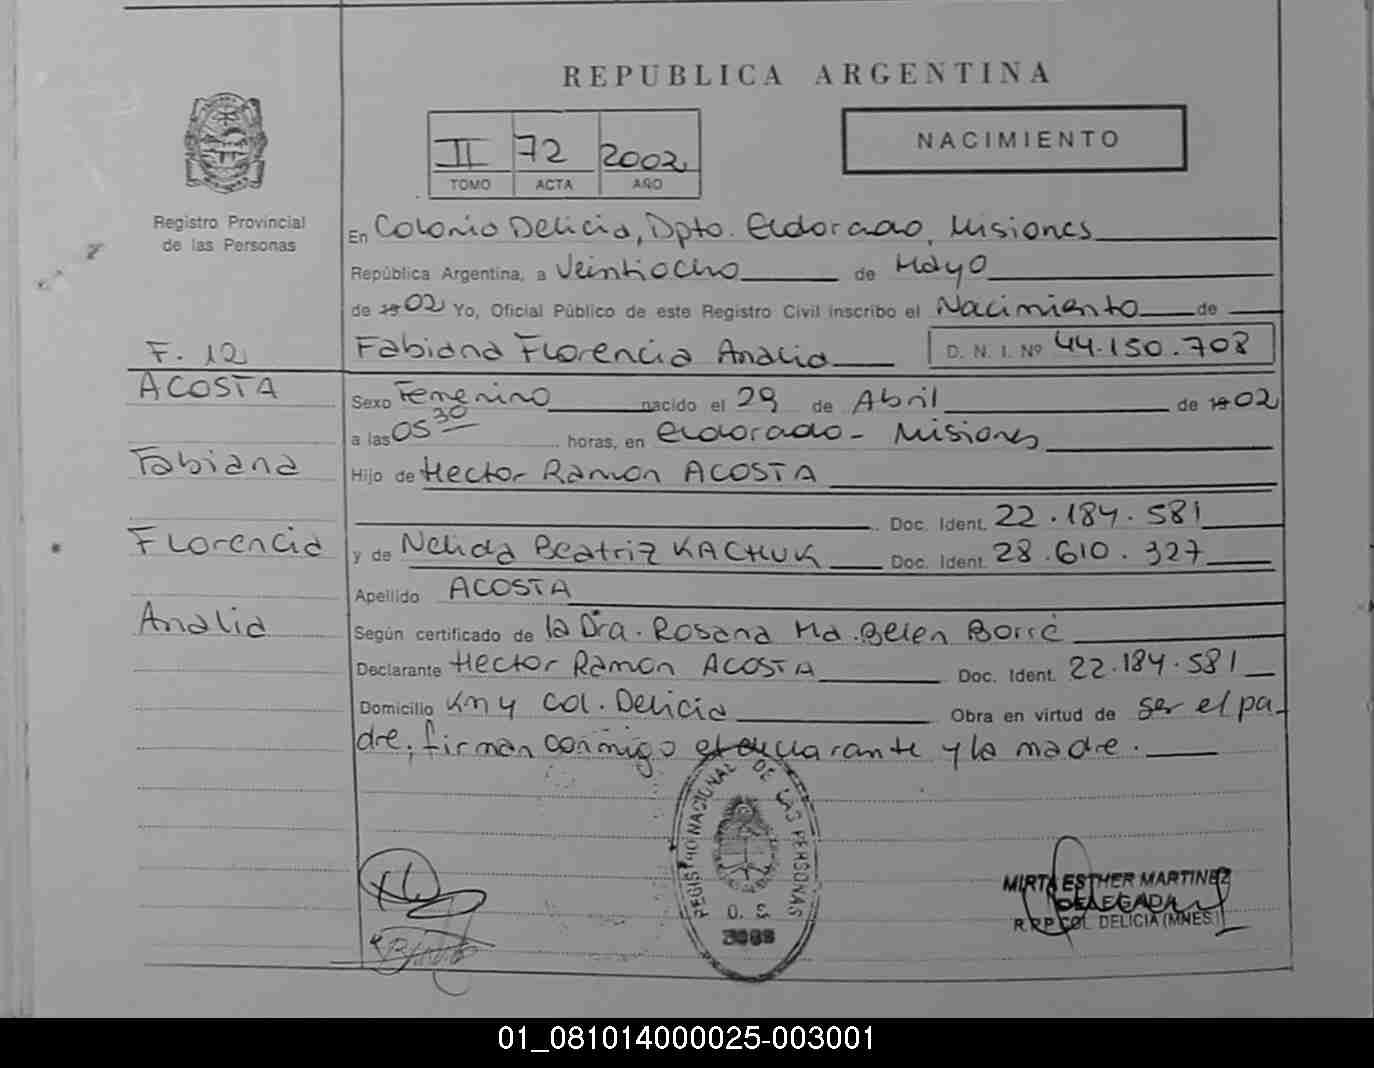 REPUBLICA ARGENTINA
NACIMIENTO
II 72 2002
TOMO ACTA AÑO
Registro Provincial
de las Personas
En Colonia Delicia, Dpto. Eldorado, Misiones
República Argentina, a Veintiocho de Mayo
de 19 02 Yo, Oficial Público de este Registro Civil inscribo el Nacimiento de
F. 12
Fabiana Florencia Analia D. N. I. Nº 44.150.708
ACOSTA
Sexo Femenino nacido el 29 de Abril de 19 02
a las 05 30 horas, en Eldorado - Misiones
Fabiana
Hijo de Hector Ramon ACOSTA
Doc. Ident. 22.184.581
Florencia
y de Nelida Beatriz KACHUK Doc. Ident. 28.610.327
Apellido ACOSTA
Analia
Según certificado de la Dra. Rosana Ma. Belen Borré
Declarante Hector Ramon ACOSTA Doc. Ident. 22.184.581
Domicilio Km 4 Col. Delicia Obra en virtud de ser el pa-
dre, firman conmigo el declarante y la madre.
REGISTRO NACIONAL DE LAS PERSONAS
O. S.
MIRTA ESTHER MARTINEZ
DELEGADA
R.P.P COL. DELICIA (MNES.)
01_081014000025-003001